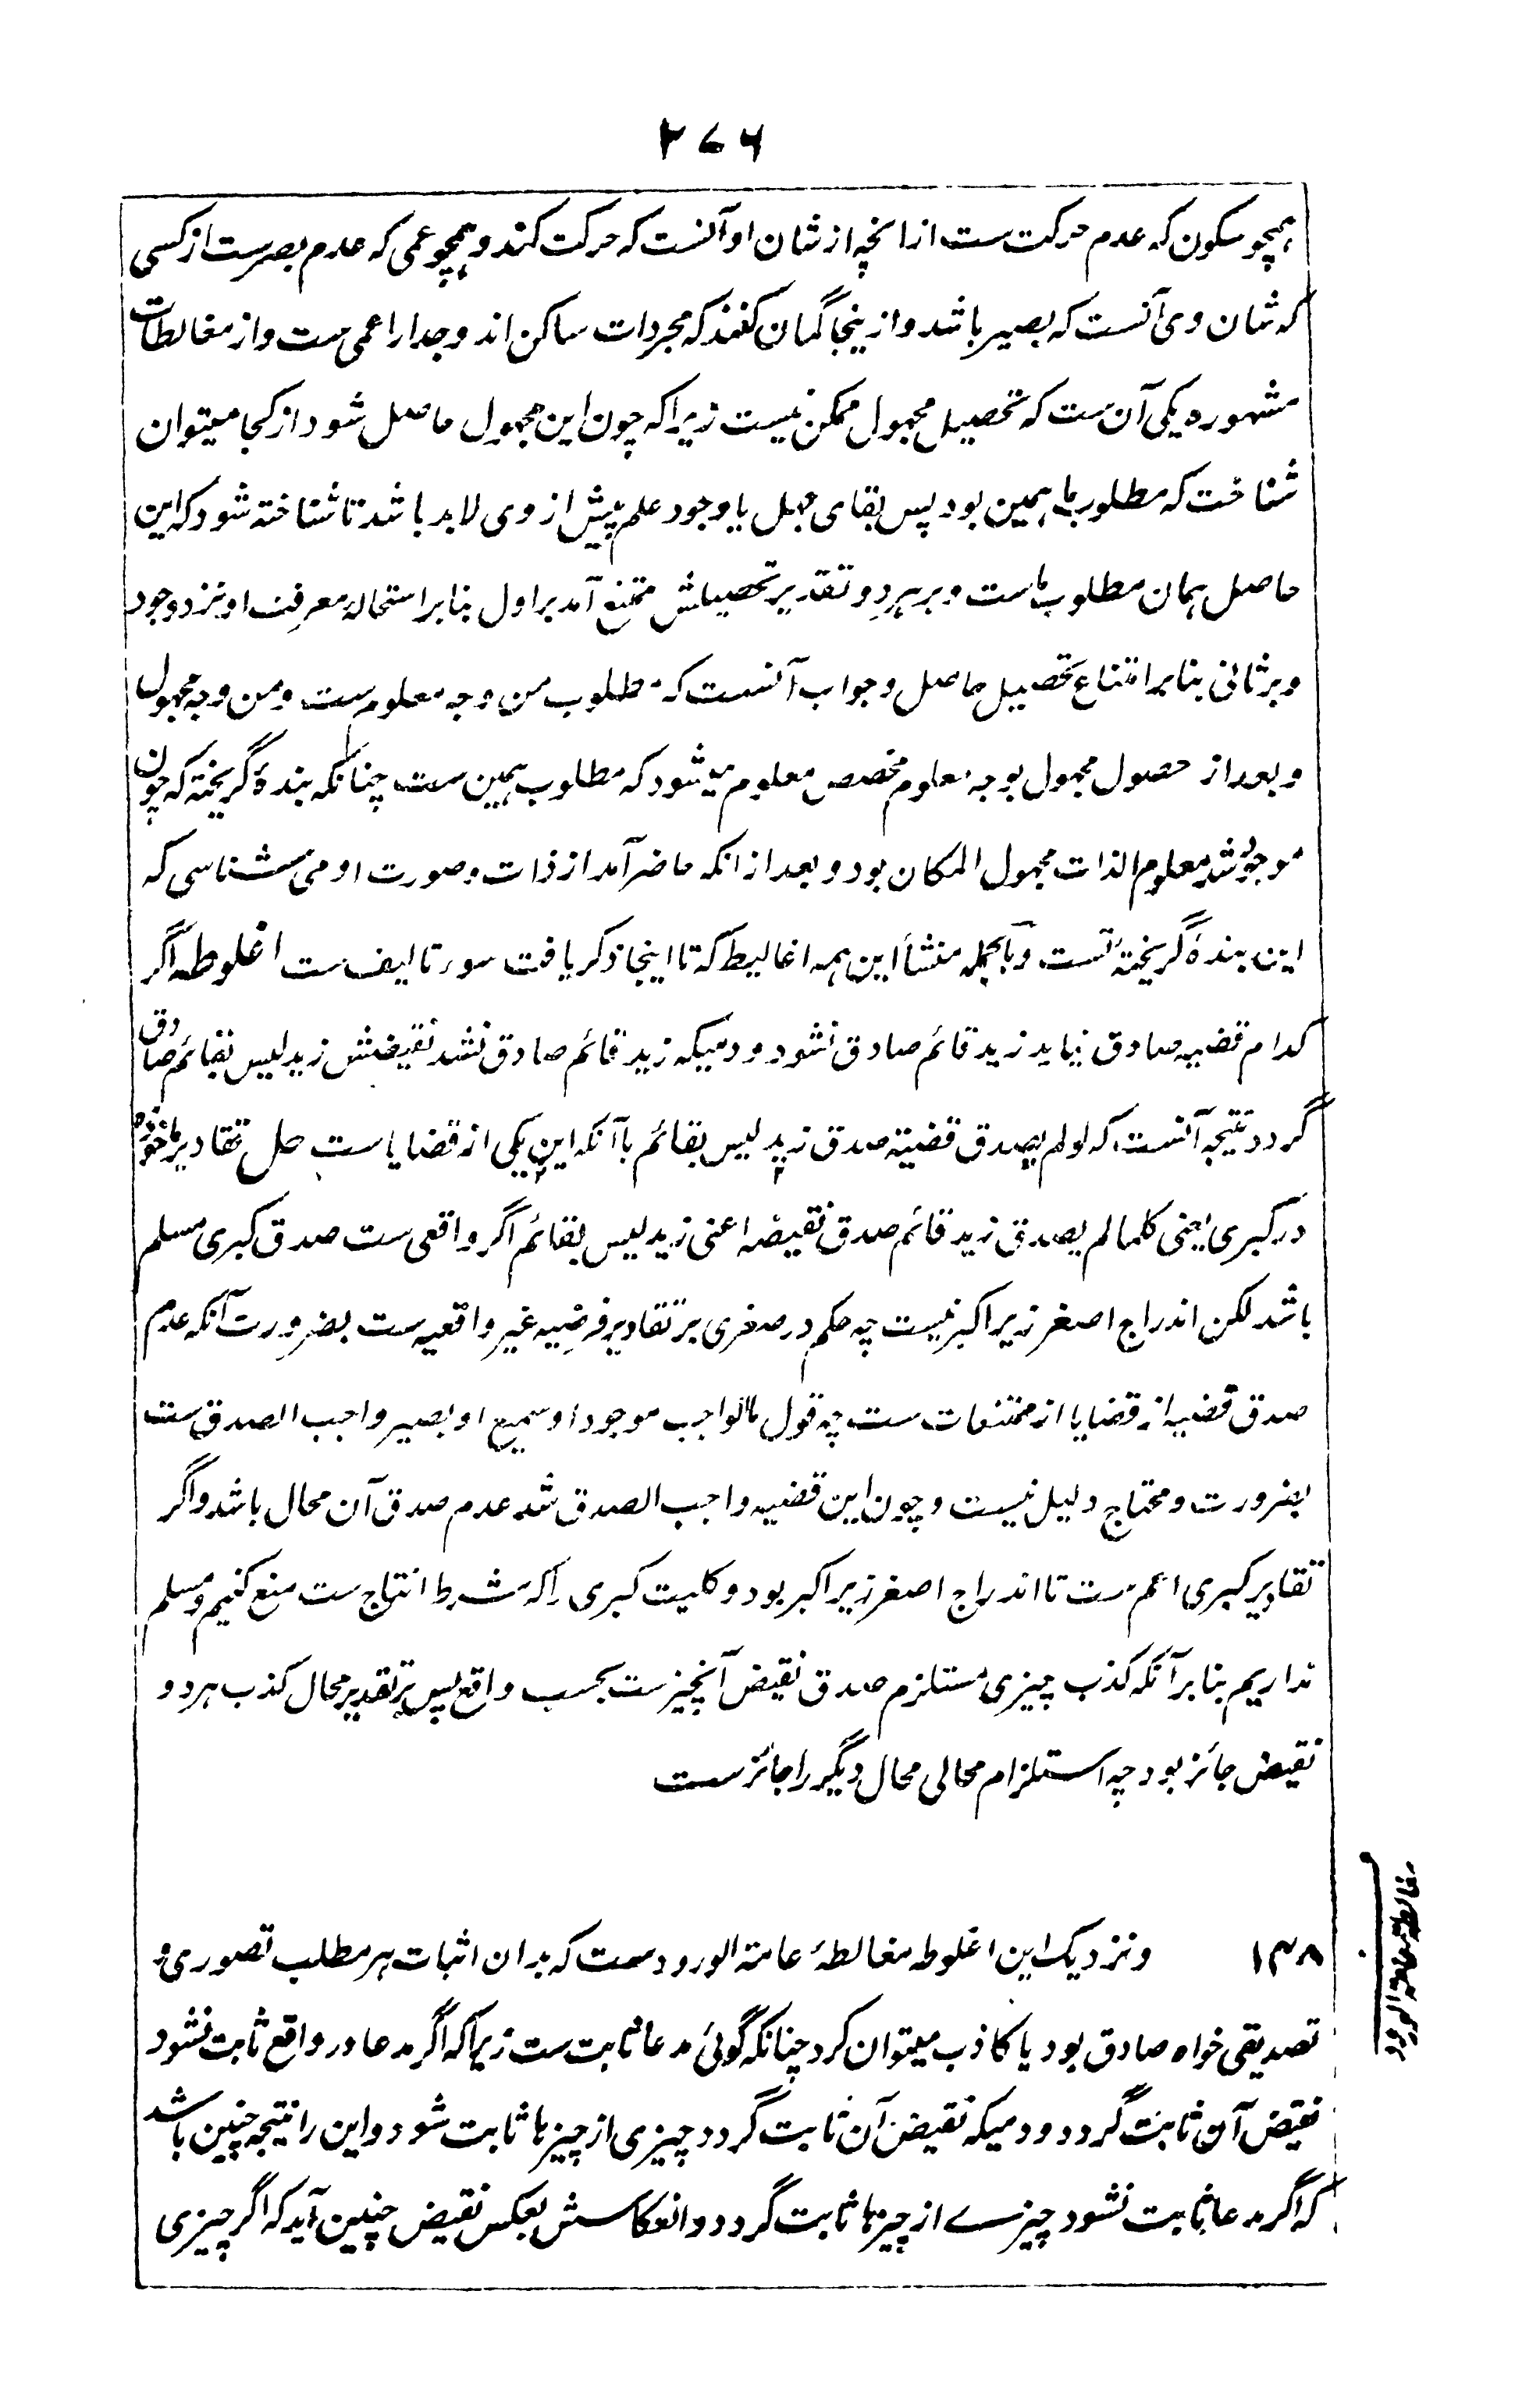 ۲۷۶
ہمچو سکون کہ عدم حرکت ست از انچہ از شان او آنست کہ حرکت کند و ہمچو عمی کہ عدم بصرست از کسی
کہ شان وی آنست کہ بصیر باشد و ازینجا گمان کنند کہ مجردات ساکن اند و جدار اعمی ست و از مغالطات
مشہورہ یکی آن ست کہ تحصیل مجہول ممکن نیست زیرا کہ چون این مجہول حاصل شود از کجا میتوان
شناخت کہ مطلوب ما ہمین بود پس بقای جہل یا وجود علم پیش از وی لابد باشد تا شناختہ شود کہ این
حاصل ہمان مطلوب ماست و بر ہر دو تقدیر تحصیلش ممتنع آمد بر اول بنا بر استحالۂ معرفت او نزد وجود
و بر ثانی بنا بر امتناع تحصیل حاصل و جواب آنست کہ مطلوب من وجہ معلوم ست و من وجہ مجہول
و بعد از حصول مجہول بوجہ معلوم مخصص معلوم میشود کہ مطلوب ہمین ست چنانکہ بندۂ گریختہ کہ چون
موجود شد معلوم الذات مجہول المکان بود و بعد از انکہ حاضر آمد از ذات و صورت او می شناسی کہ
این بندۂ گریختۂ تست و بالجملہ منشأ این ہمہ اغالیط کہ تا اینجا ذکر یافت سوء تالیف ست اغلوطہ اگر
کدام قضیہ صادق نیاید زید قائم صادق نشود و دمیکہ زید قائم صادق نشد نقیضش زید لیس بقائم صادق
گردد نتیجہ آنست کہ لو لم یصدق قضیۃ صدق زید لیس بقائم با آنکہ این یکی از قضایا ست حل تقادیر ماخوذہ
در کبری یعنی کلما لم یصدق زید قائم صدق نقیضہ اعنی زید لیس بقائم اگر واقعی ست صدق کبری مسلم
باشد لکن اندراج اصغر زیر اکبر نیست چہ حکم در صغری بر تقادیر فرضیہ غیر واقعیہ ست بضرورت آنکہ عدم
صدق قضیہ از قضایا از ممتنعات ست چہ قول ما الواجب موجود او سمیع او بصیر واجب الصدق ست
بضرورت و محتاج دلیل نیست و چون این قضیہ واجب الصدق شد عدم صدق آن محال باشد و اگر
تقادیر کبری اعم ست تا اندراج اصغر زیر اکبر بود و کلیت کبری را کہ شرط انتاج ست منع کنیم و مسلم
نداریم بنا بر آنکہ کذب چیزی مستلزم صدق نقیض آنچیزست بحسب واقع پس بر تقدیر محال کذب ہر دو
نقیض جائز بود چہ استلزام محالی محال دیگر را جائزست
مغالطہ عامۃ الورود
۱۳۸ و نزدیک این اغلوطہ مغالطۂ عامۃ الورودست کہ بدان اثبات ہر مطلب تصوری و
تصدیقی خواہ صادق بود یا کاذب میتوان کرد چنانکہ گوئی مدعا ثابت ست زیرا کہ اگر مدعا در واقع ثابت نشود
نقیض آن ثابت گردد و دمیکہ نقیض آن ثابت گردد چیزی از چیزہا ثابت شود و این را نتیجہ چنین باشد
کہ اگر مدعا ثابت نشود چیزے از چیزہا ثابت گردد و انعکاسش بعکس نقیض چنین آید کہ اگر چیزی